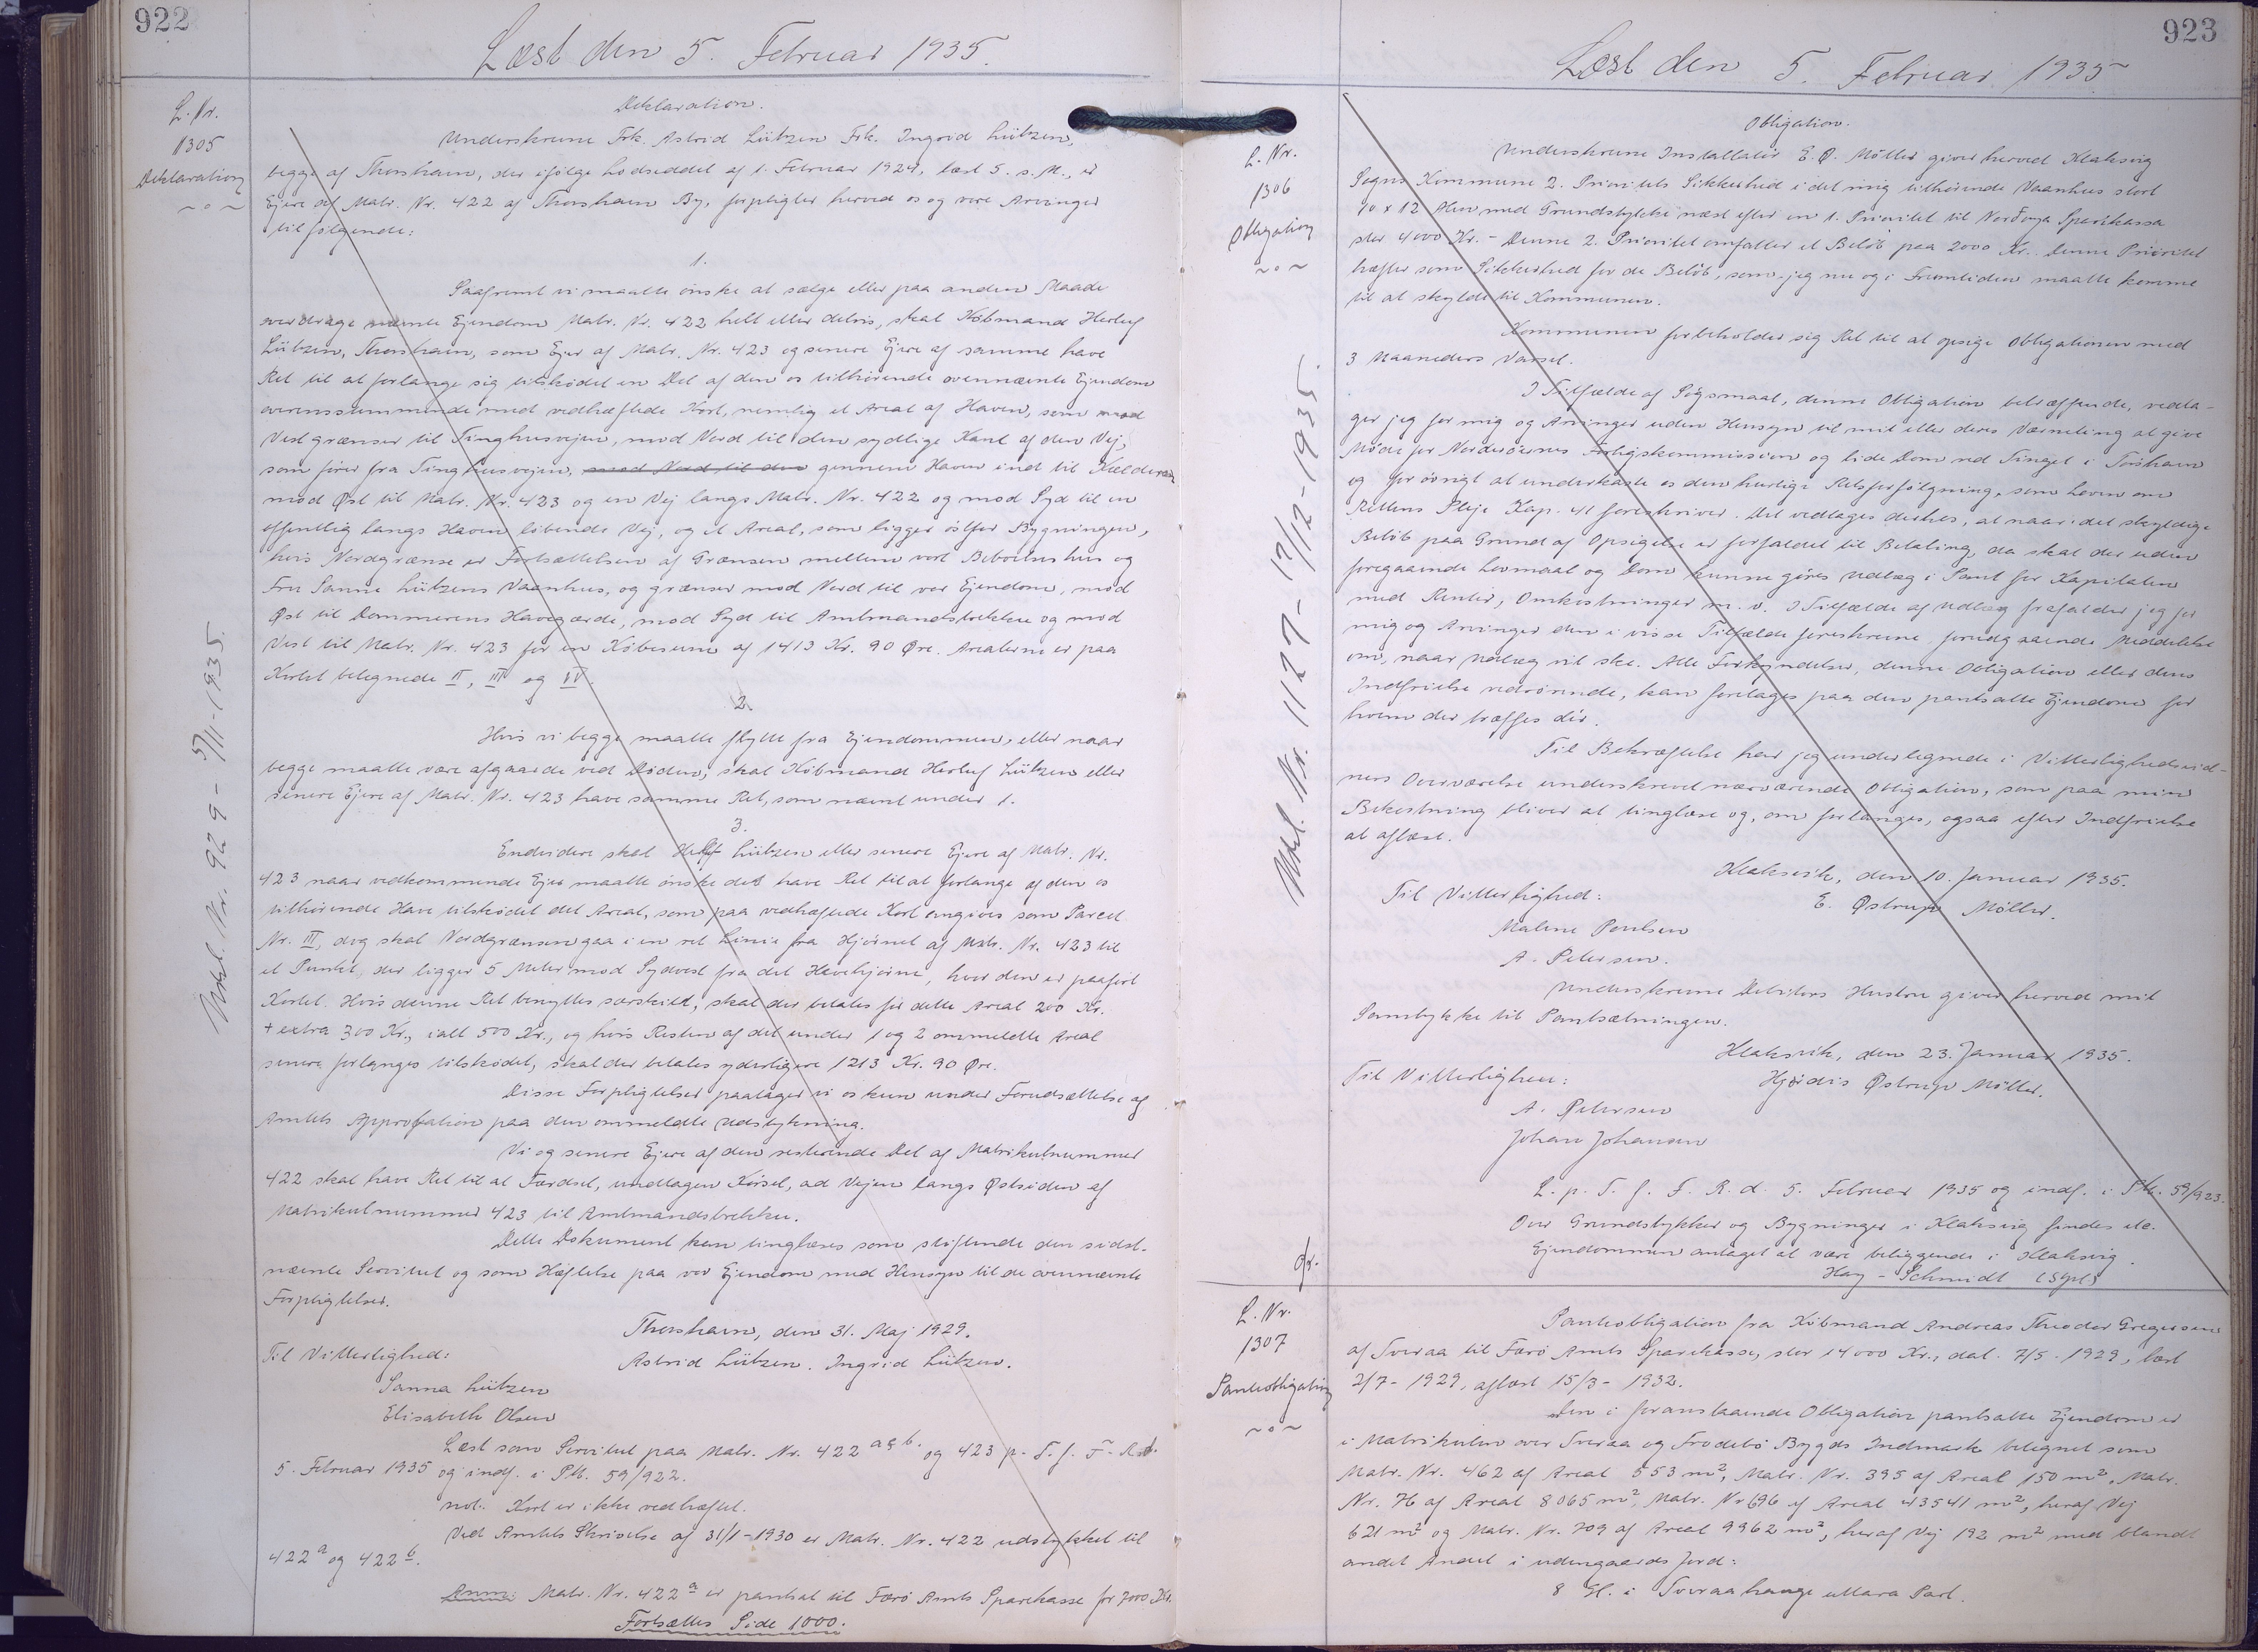 922
Læst den 5. Februar 1935.
L. Nr.
1305
Deklaration
~ o ~
Deklaration.
Underskrevne Frk. Astrid Lützen Frk. Ingrid Lützen,
begge af Thorshavn, der ifølge Lodseddel af 1. Februar 1924, læst 5. s. M., er
Ejere af Matr. Nr. 422 af Thorshavn By, forpligter herved os og vore Arvinger
til følgende:
1.
Saafremt vi maatte ønske at sælge eller paa anden Maade
overdrage nævnte Ejendom Matr. Nr. 422 helt eller delvis, skal Købmand Herluf
Lützen, Thorshavn, som Ejer af Matr. Nr. 423 og senere Ejere af samme have
Ret til at forlange sig tilskødet en Del af den os tilhørende ovennævnte Ejendom
overensstemmende med vedhæftede Kort, nemlig et Areal af Haven, som mod
Vest grænser til Tinghusvejen, mod Nord til den sydlige Kant af den Vej,
som fører fra Tinghusvejen, mod Nord til den gennem Haven ind til Kælderen
mod Øst til Matr. Nr. 423 og en Vej langs Matr. Nr. 422 og mod Syd til en
offentlig langs Haven løbende Vej, og et Areal, som ligger østfor Bygningen,
hvis Nordgrænse er Fortsættelsen af Grænsen mellem vort Beboelseshus og
Fru Sanne Lützens Vaanhus, og grænser mod Nord til vor Ejendom, mod
Øst til Dommerens Havegærde, mod Syd til Amtmandsbrekku og mod
Vest til Matr. Nr. 423 for en Købesum af 1413 Kr. 90 Øre. Arealerne er paa
Kortet betegnede II, III og IV.
2.
Hvis vi begge maatte flytte fra Ejendommen, eller naar
begge maatte være afgaaede ved Døden, skal Købmand Herluf Lützen eller
senere Ejere af Matr. Nr. 423 have samme Ret, som nævnt under 1.
3.
Endvidere skal Herluf Lützen eller senere Ejere af Matr. Nr.
423 naar vedkommende Ejer maatte ønske det have Ret til at forlange af den os
tilhørende Have tilskødet det Areal, som paa vedhæftede Kort angives som Parcel
Nr. III, dog skal Nordgrænsen gaa i en ret Linie fra Hjørnet af Matr. Nr. 423 til
et Punkt, der ligger 5 Meter mod Sydvest fra det Havehjørne, hvor den er paaført
Kortet. Hvis denne Ret benyttes særskilt, skal der betales for dette Areal 200 Kr.
+ extra 300 Kr., ialt 500 Kr., og hvis Resten af det under 1 og 2 ommeldte Areal
senere forlanges tilskødet, skal der betales yderligere 1213 Kr. 90 Øre.
Disse Forpligtelser paatager vi os kun under Forudsættelse af
Amtets Approbation paa den ommeldte Udstykning.
Vi og senere Ejere af den resterende Del af Matrikulnummer
422 skal have Ret til at Færdsel, undtagen Kørsel, ad Vejen langs Østsiden af
Matrikulnummer 423 til Amtmandsbrekku.
Dette Dokument kan tinglæses som stiftende den sidst-
nævnte Servitut og som Hæftelse paa vor Ejendom med Hensyn til de ovennævnte
Forpligtelser.
Thorshavn, den 31. Maj 1929.
Til Vitterlighed:
Astrid Lützen. Ingrid Lützen.
Sanna Lützen
Elisabeth Olsen
Læst som Servitut paa Matr. Nr. 422 a og b. og 423 p. T. f. F. R. d.
5. Februar 1935 og indf. i P.M. 59/922.
not. Kort er ikke vedhæftet.
Ved Amtets Skrivelse af 31/1-1930 er Matr. Nr. 422 udstykket til
422 a og 422 b.
Anm: Matr. Nr. 422 a er pantsat til Færø Amts Sparekasse for 7000 Kr.
Fortsættes Side 1000.
Udsl. Nr. 929 - 5/11-1935.
923
Læst den 5. Februar 1935
L. Nr.
1306
Obligation
~ o ~
Obligation.
Underskrevne Installatør E. Ø. Möller giver herved Klaksvig
Sogns Kommune 2. Prioritets Sikkerhed i det mig tilhørende Vaanhus stort
10 x 12 Alen med Grundstykke næst efter en 1. Prioritet til Norðoya Sparikassa
stor 4000 Kr. - Denne 2. Prioritet omfatter et Beløb paa 2000 Kr. Denne Prioritet
hæfter som Sikkerhed for de Beløb, som jeg nu og i Fremtiden maatte komme
til at skylde til Kommunen.
Kommunen forbeholder sig Ret til at opsige Obligationen med
3 Maaneders Varsel.
I Tilfælde af Søgsmaal, denne Obligation betræffende, vedta-
ger jeg for mig og Arvinger uden Hensyn til mit eller deres Værneting at give
Møde for Norderøernes Forligskommission og lide Dom ved Tinget i Torshavn
og for øvrigt at underkaste os den hurtige Retsforfølgning, som Loven om
Rettens Pleje Kap. 41 foreskriver. Det vedtages derhos, at naar det skyldige
Beløb paa Grund af Opsigelse er forfaldet til Betaling, da skal der uden
foregaaende Lovmaal og Dom kunne gøres Udlæg i Pant for Kapitalen
med Renter, Omkostninger m. v. I Tilfælde af Udlæg frafalder jeg for
mig og Arvinger den i visse Tilfælde foreskrevne forudgaaende Meddelelse
om, naar Udlæg vil ske. Alle Forkyndelser, denne Obligation eller dens
Indfrielse vedrørende, kan foretages paa den pantsatte Ejendom for
hvem der træffes dér.
Til Bekræftelse har jeg undertegnede i Vitterlighedsvid-
ners Overværelse underskrevet nærværende Obligation, som paa min
Bekostning bliver at tinglæse og, om forlanges, ogsaa efter Indfrielse
at aflæse.
Klaksvik, den 10. Januar 1935.
Til Vitterlighed:
E. Østrup Möller.
Malene Poulsen
A. Petersen.
Underskrevne Debitors Hustru giver herved mit
Samtykke til Pantsætningen.
Klaksvik, den 23. Januar 1935.
Til Vitterlighed:
Hjørdis Østrup Möller.
A. Petersen
Johan Johansen
L. p. T. f. F. R. d. 5. Februar 1935 og indf. i P.M. 59/923.
Over Grundstykker og Bygninger i Klaksvig findes
Ejendommen antaget at være beliggende i Klaksvig.
Hay-Schmidt
Udsl. Nr. 1127 - 17/12-1935.
L. Nr.
1307
Panteobligation
~ o ~
Panteobligation fra Købmand Andreas Theodor Gregersen
af Tveraa til Færø Amts Sparekasse, stor 14000 Kr., dat. 7/5-1929, læst
2/7-1929, aflæst 15/3-1932.
Den i foranstaaende Obligation pantsatte Ejendom er
i Matrikulen over Tveraa og Frodebö Bygds Indmark betegnet som
Matr. Nr. 462 af Areal 553 m², Matr. Nr. 395 af Areal 150 m², Matr.
Nr. 76 af Areal 8065 m², Matr. Nr 696 af Areal 43541 m², heraf Vej
621 m² og Matr. Nr. 709 af Areal 9962 m², heraf Vej 192 m² med blandt
andet Andel i udengaards Jord:
8 Gl. i Tveraa hauge uttara Part.